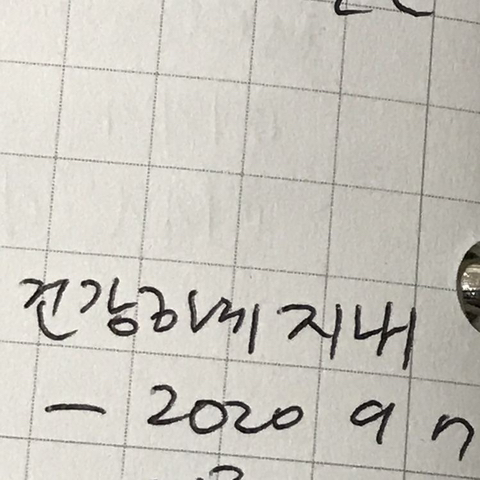 건강하게 지내
- 2020 9